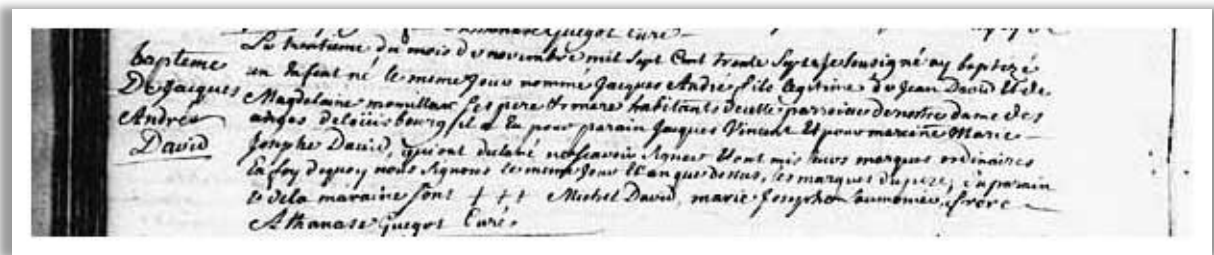 Guegot Curé
bapteme
De Jacques
André
David
Le trentieme du mois de novembre mil sept Cent trente Sept je Sousigné ay baptizé
un Enfent né le meme jour nommé Jacques André fils legitime de Jean David Et de
Magdelaine ses pere Et mere habitants de cette parroisse de nostre dame des
anges de Loüisbourg il a Eu pour parain Jacques Vincent Et pour maraine Marie
Josephe David, qui ont declaré ne scavoir signer Et ont mis leurs marques ordinaires
En foy de quoy nous signons le meme jour Et an que dessus, les marques du pere, du parain
Et de la maraine sont + + + Michel David, marie Josephe frere
Athanase Guegot Curé